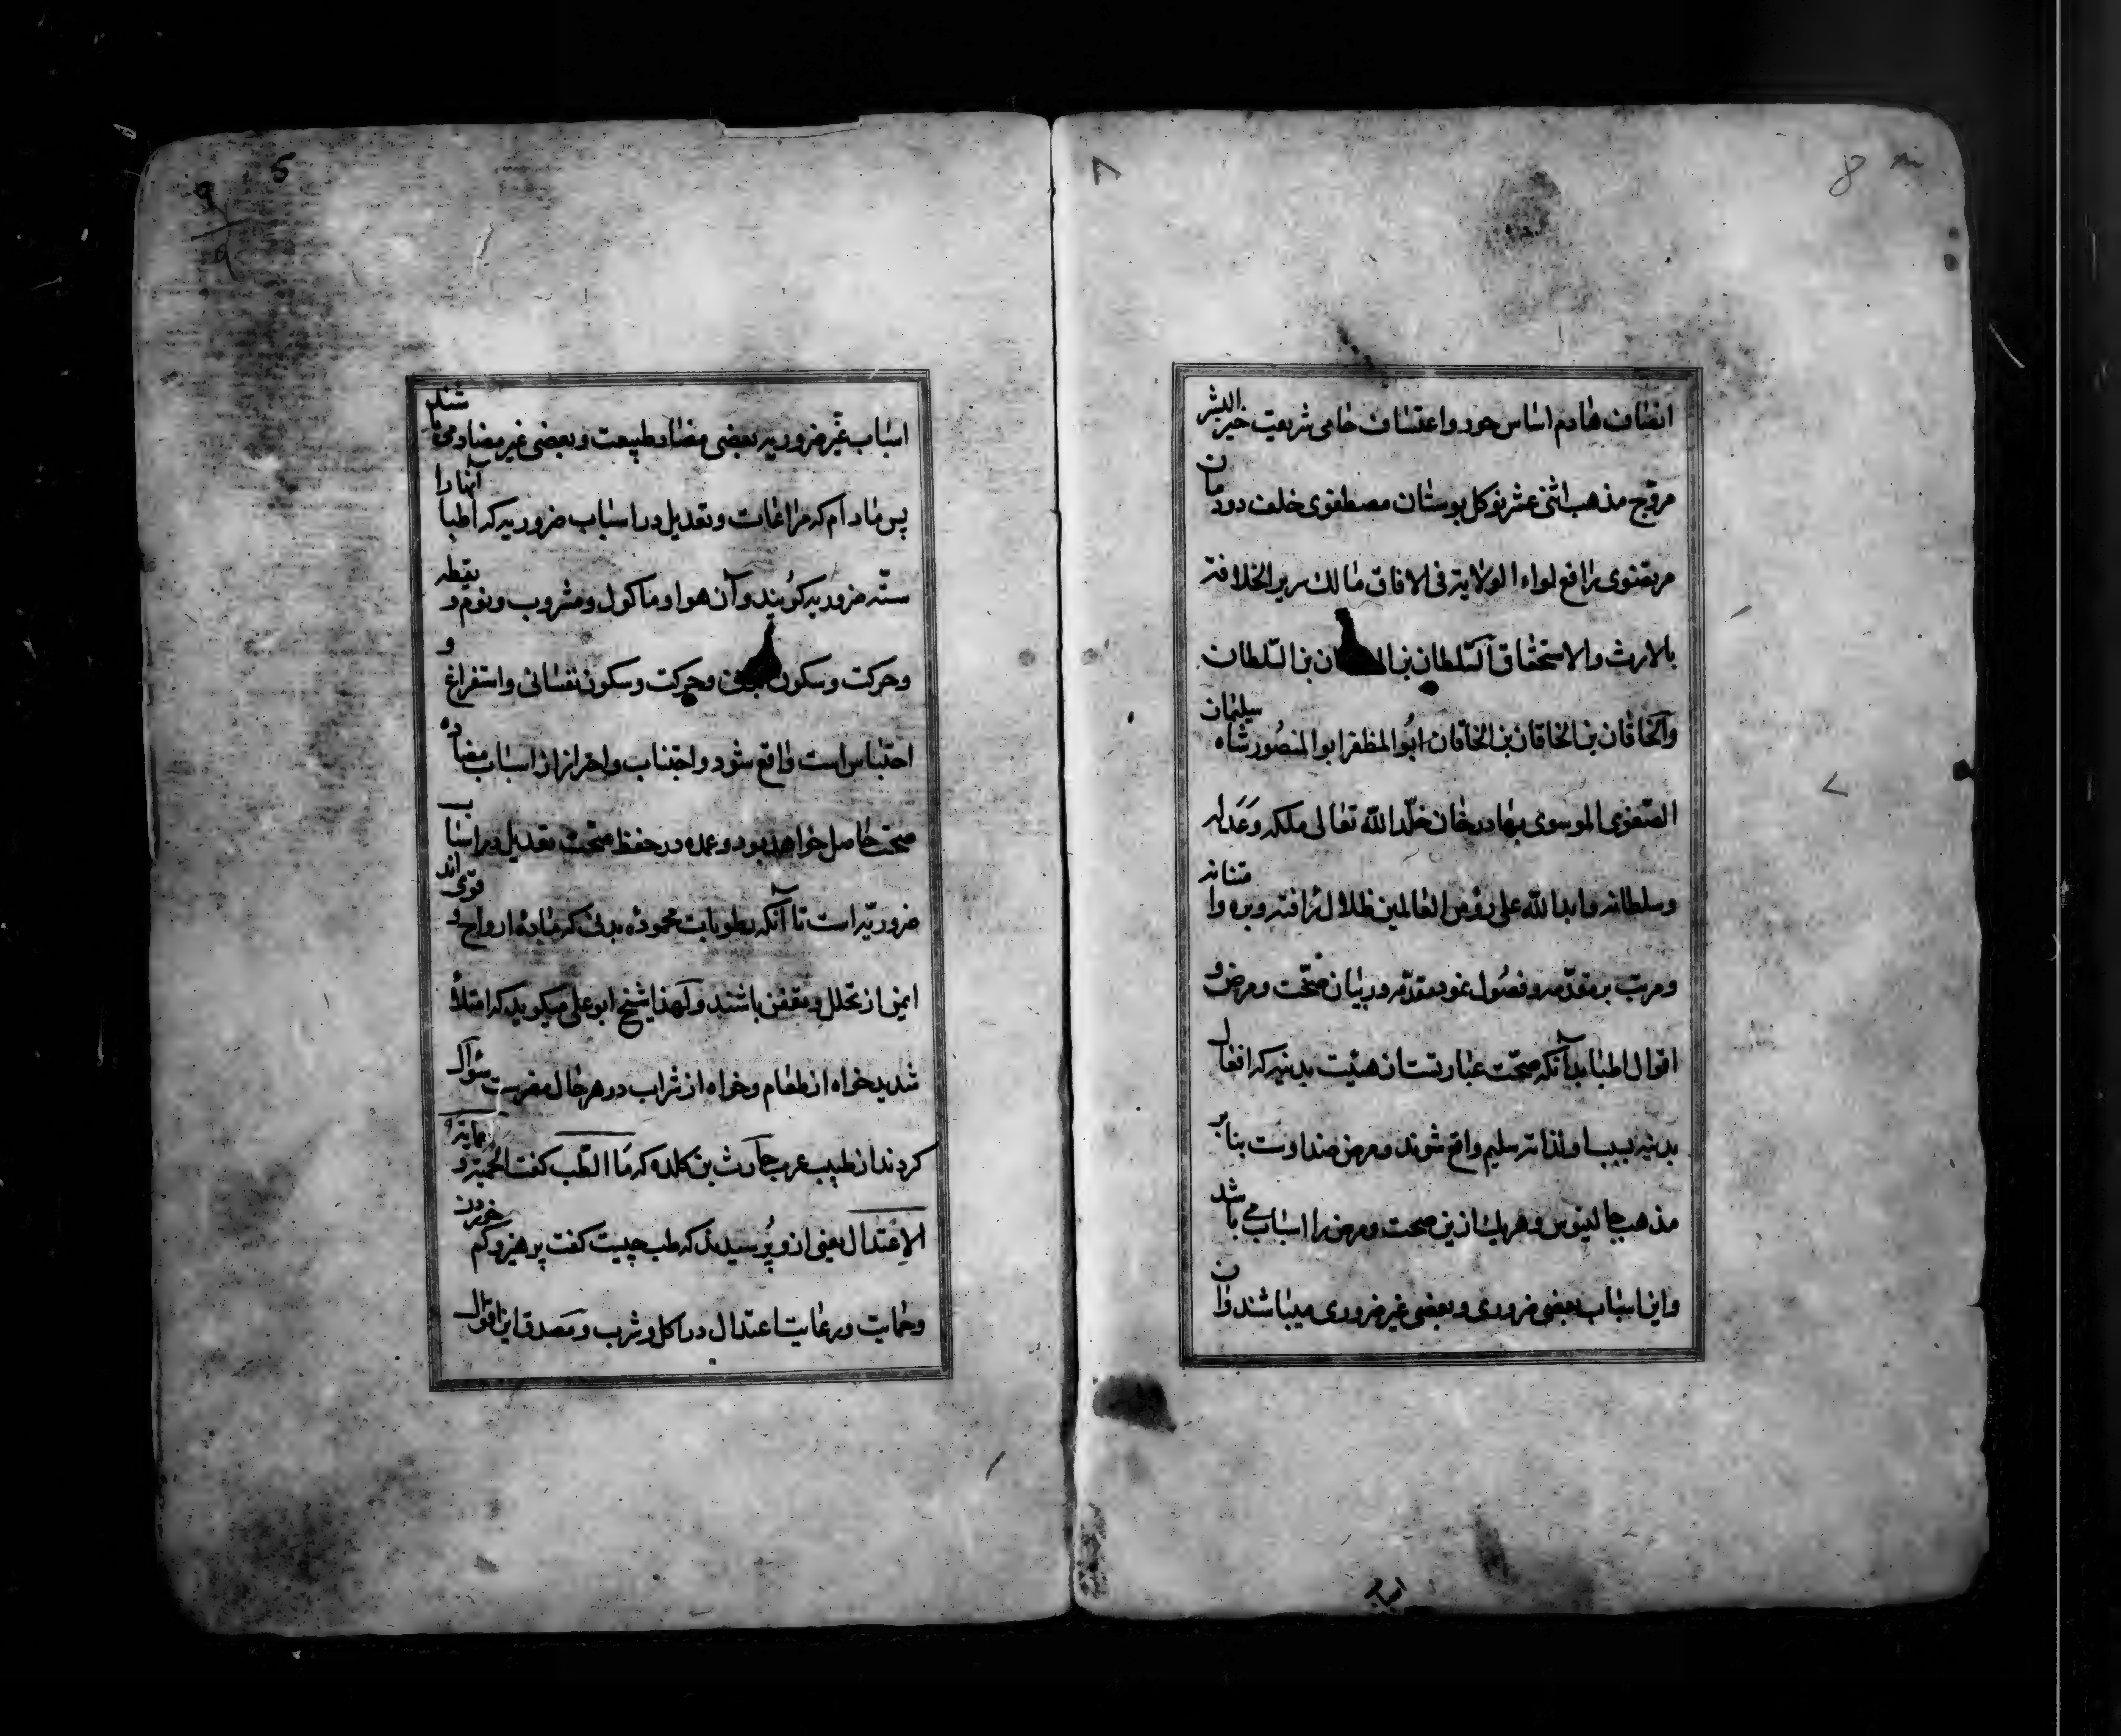 8
۸
انصاف هادم اساس جور و اعتساف حامی شریعت خیر البشر
مروّج مذهب اثنی عشر نوکل بوستان مصطفوی خلف دودمان
مرتضوی رافع لواء الولایة فی الافاق مالك سریر الخلافة
بالارث والاستحقاق السّلطان بن السّلطان
والخاقان بن الخاقان بن الخاقان ابُوالمظفر ابوالمنصُور شاه سلیمان
الصّفوی الموسوی بهادرخان خلّد اللّه تعالی ملکه وَعَدله
وسلطانه وابد اللّه علی رؤس العالمین ظلال رافته وبره وامتنانه
ومرتب بر مقدّمه و فصُول نمود مقدّمه در بیان صحّت و مرض و
اقوال اطبا بدآنکه صحّت عبارتست از هیئت بدنیه که افعال
بدنیه بسبب او لذاته سلیم واقع شوند و مرض ضد اوست بنابر
مذهب جالینوس و هریك ازین صحت و مرض را اسباب می باشد
واین اسباب بعضی ضروری و بعضی غیر ضروری میباشند وان
اسباب
5
۹
۹
اسباب غیر ضروریه بعضی مضاد طبیعت و بعضی غیر مضاد می باشند
پس مادام که مراعات و تعدیل در اسباب ضروریه که اطبا آنها را
ستّه ضروریه کُویند و آن هوا و ماکول و مشروب و نوم و یقظه
و حرکت و سکون و حرکت و سکون نفسانی و استفراغ و
احتباس است واقع شود و اجتناب و احراز از اسباب مضاده
صحت حاصل خواهد بود و عمده در حفظ صحّت تعدیل در اسباب
ضروریّه است تا آنکه رطوبات محمودهٔ بدنی که مادهٔ ارواح و قوی اند
ایمن از تحلل و تعفن باشند و لهذا شیخ ابو علی میکوید که امتلأ
شدید خواه از طعام و خواه از شراب در هر حال مضرست سؤال
کردند از طبیب عرب حارث بن کلده که مَا الطّب کفت الحمیَة و
الاِعتدال یعنی از و پُرسیدند که طب چیست کفت پرهیز و کم خوردن
و حمایت و رعایت اعتدال در اکل و شرب و مصدق این اقوال